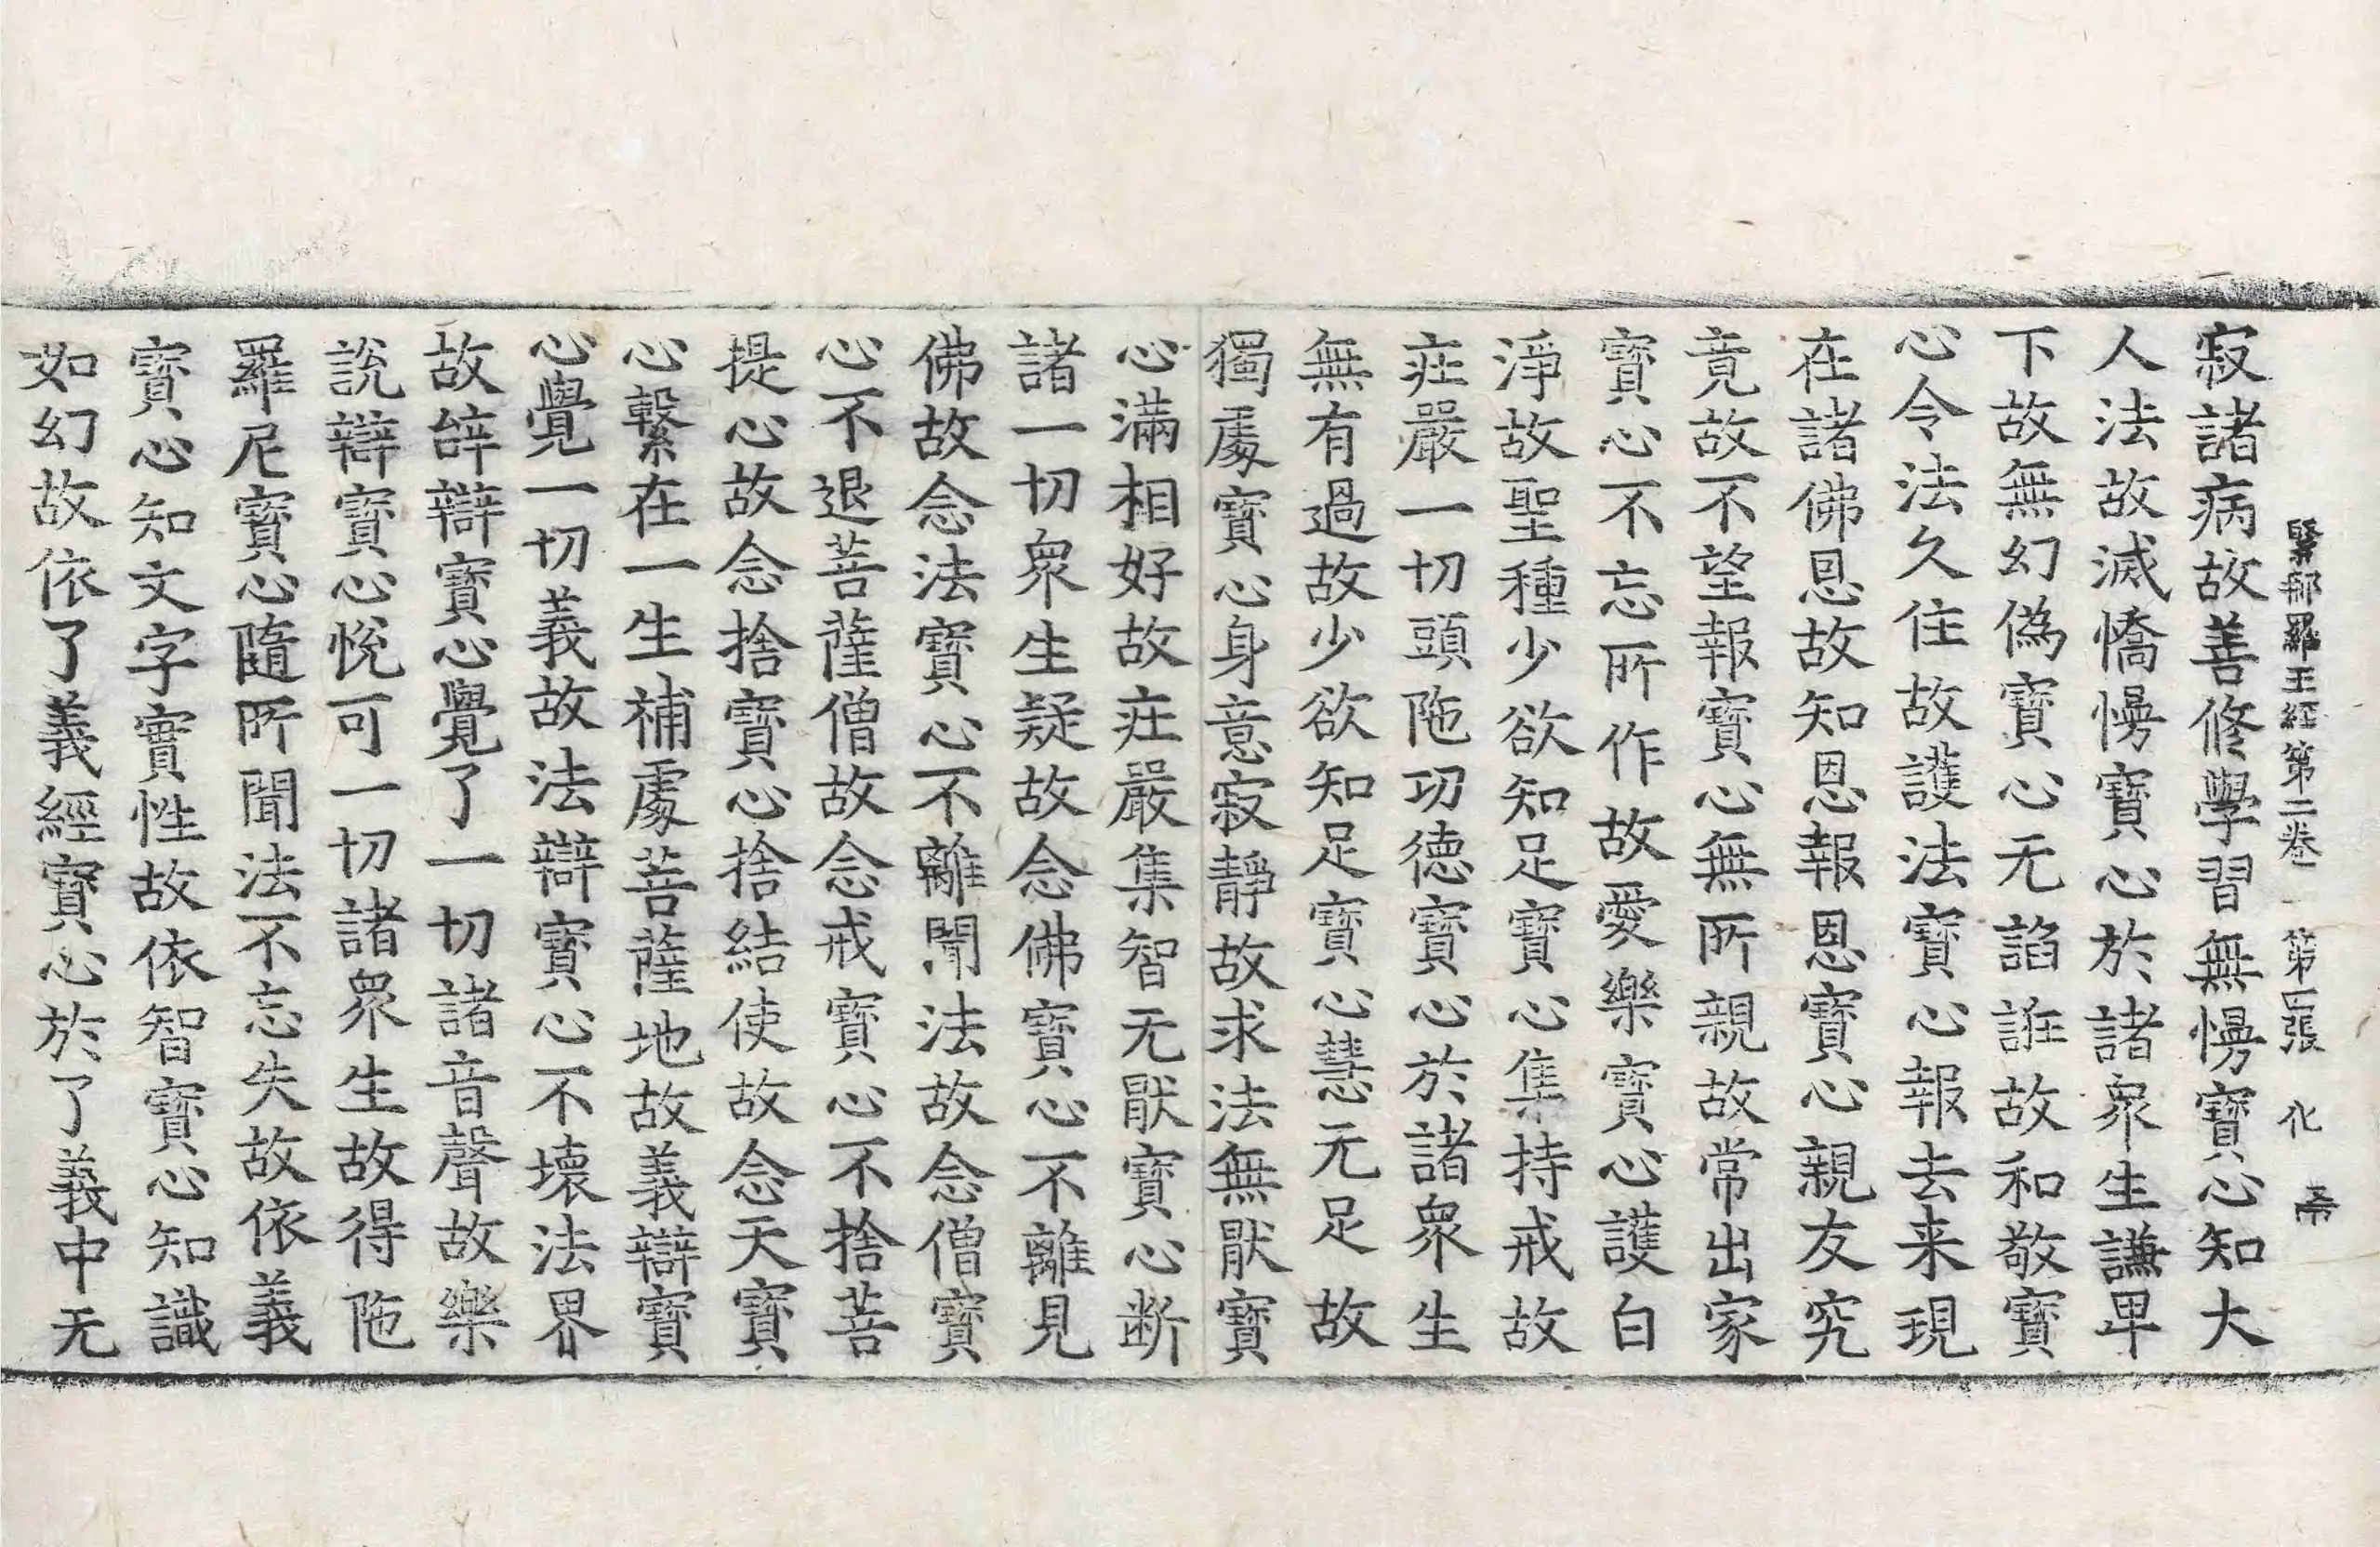 緊那羅王經第二卷　第二張　化　帝
寂諸病故善修學習無慢寶心知大
人法故滅憍慢寶心於諸衆生謙卑
下故無幻偽寶心无諂誑故和敬寶
心令法久住故護法寶心報去来現
在諸佛恩故知恩報恩寶心親友究
竟故不望報寶心無所親故常出家
寶心不忘所作故愛樂寶心護白
淨故聖種少欲知足寶心集持戒故
莊嚴一切頭陁功德寶心於諸衆生
無有過故少欲知足寶心慧无足故
獨處寶心身意寂靜故求法無猒寶
心滿相好故莊嚴集智无猒寶心断
諸一切衆生疑故念佛寶心不離見
佛故念法寶心不離聞法故念僧寶
心不退菩薩僧故念戒寶心不捨菩
提心故念捨寶心捨結使故念天寶
心繫在一生補處菩薩地故義辯寶
心覺一切義故法辯寶心不壞法界
故辝辯寶心覺了一切諸音聲故樂
說辯寶心悅可一切諸衆生故得陁
羅尼寶心隨所聞法不忘失故依義
寶心知文字實性故依智寶心知識
如幻故依了義經寶心於了義中无